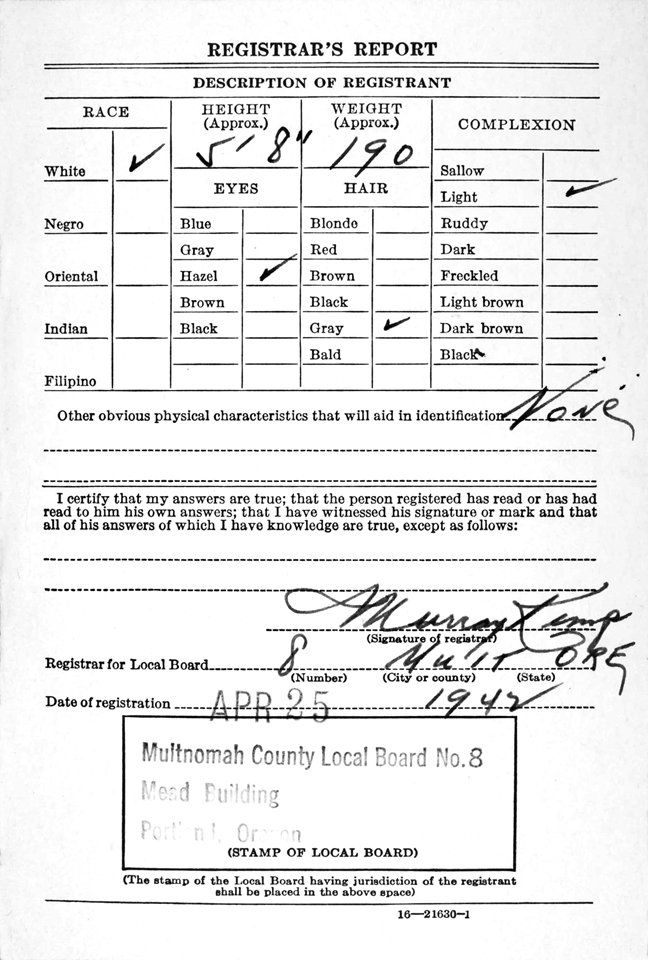 REGISTRAR'S REPORT
DESCRIPTION OF REGISTRANT
RACE
HEIGHT
(Approx.)
WEIGHT
(Approx.)
COMPLEXION
5' 8"
190
White ✓
Sallow
EYES
HAIR
Light ✓
Negro
Blue
Blonde
Ruddy
Gray
Red
Dark
Oriental
Hazel ✓
Brown
Freckled
Brown
Black
Light brown
Indian
Black
Gray ✓
Dark brown
Bald
Black
Filipino
Other obvious physical characteristics that will aid in identification None
I certify that my answers are true; that the person registered has read or has had
read to him his own answers; that I have witnessed his signature or mark and that
all of his answers of which I have knowledge are true, except as follows:
Murray Kemp
(Signature of registrar)
Registrar for Local Board 8 Mult ORE
(Number) (City or county) (State)
Date of registration APR 25 1942
Multnomah County Local Board No. 8
Mead Building
Portland, Oregon
(STAMP OF LOCAL BOARD)
(The stamp of the Local Board having jurisdiction of the registrant
shall be placed in the above space)
16—21630-1